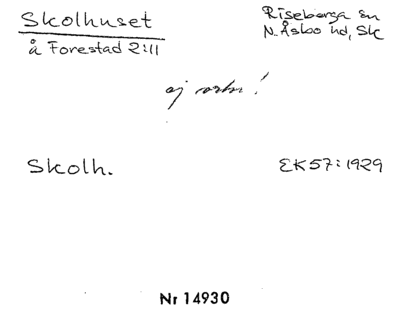 Skolhuset
å Forestad 2:11
Riseberga sn
N. Åsbo hd, Sk
ej ortn!
Skolh.
EK57:1929
Nr 14930